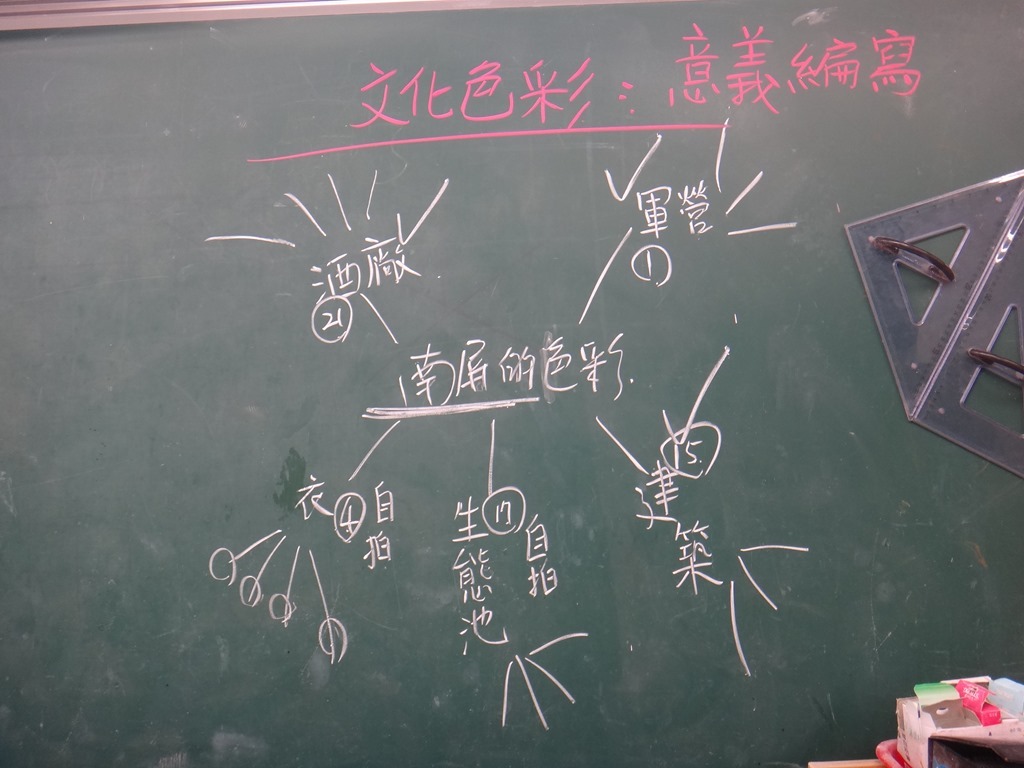 文化色彩：意義編寫
酒廠
21
軍營
1
南屏的色彩
衣
4
自拍
生態池
17
自拍
15
建築